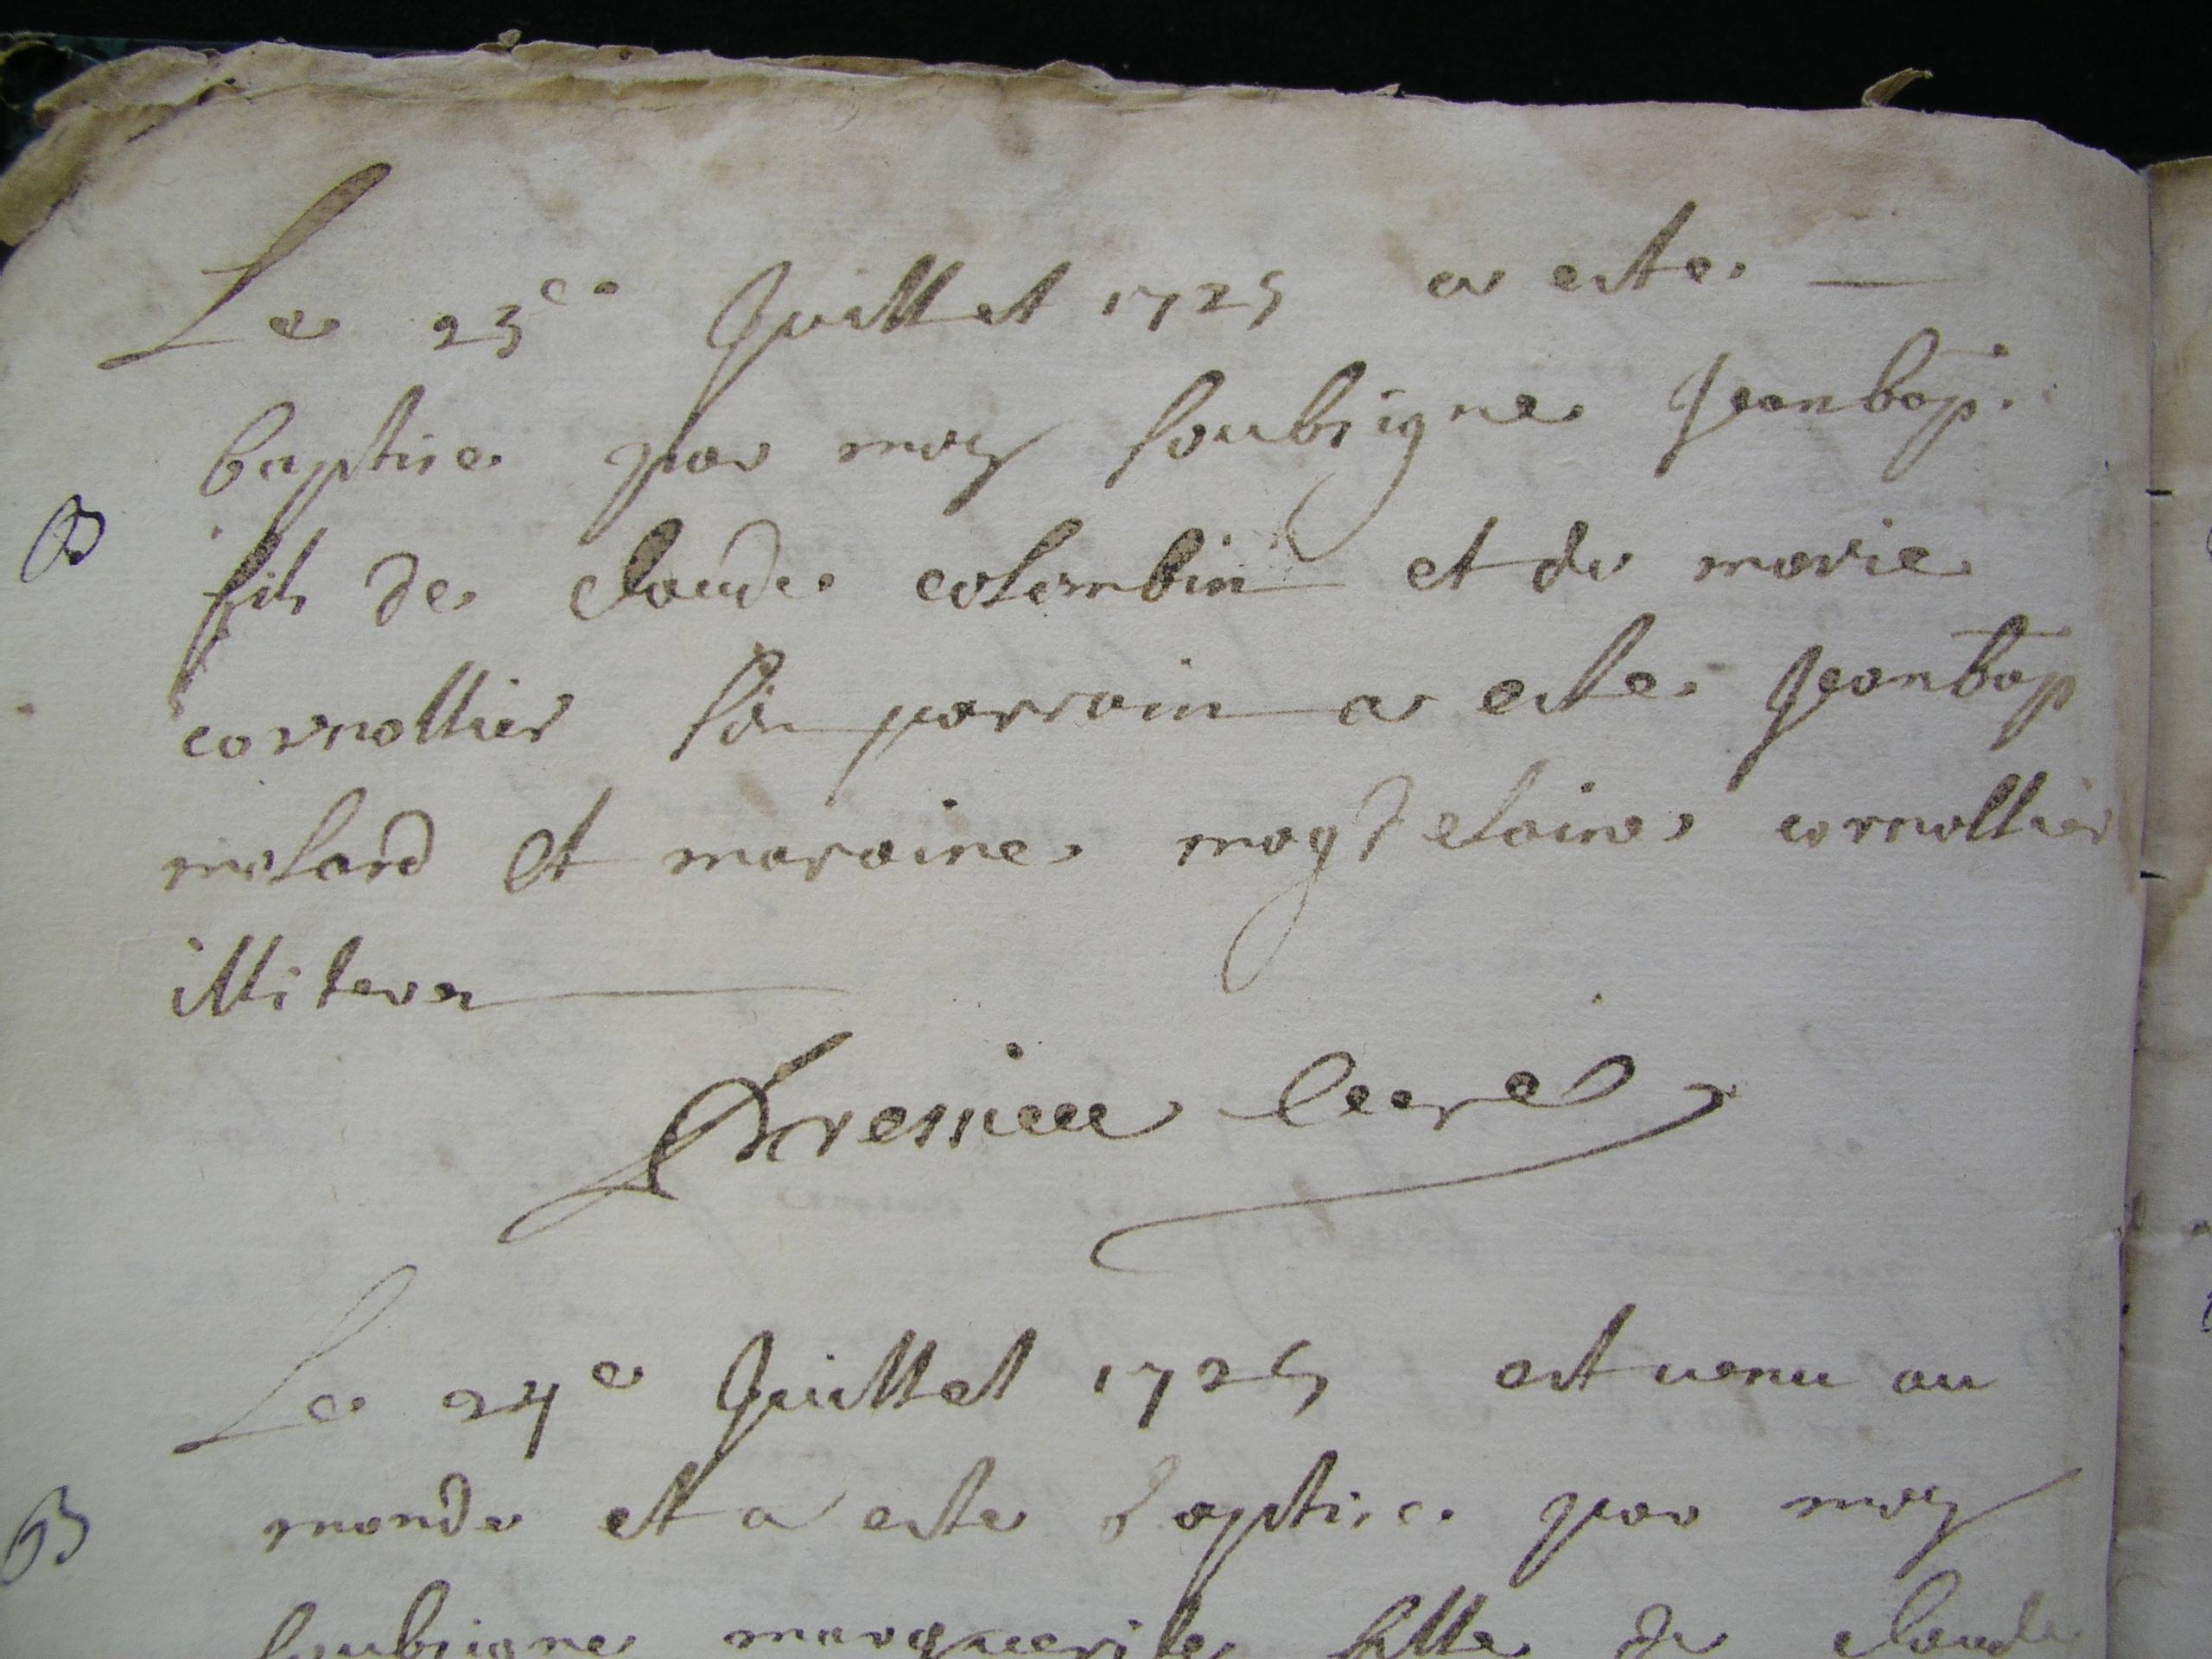 Le 23e Juillet 1725 a este
baptise par moy soubsigne Jeanbap.
B
fils de claude colombin et de marie
cornottier son parrain a este Jeanbap
molard et maraine magdelaine cornottier
illiteres
curé
Le 24e Juillet 1725 est uenu au
monde et a este baptise par moy
B
soubsigne marguerite fille de claude